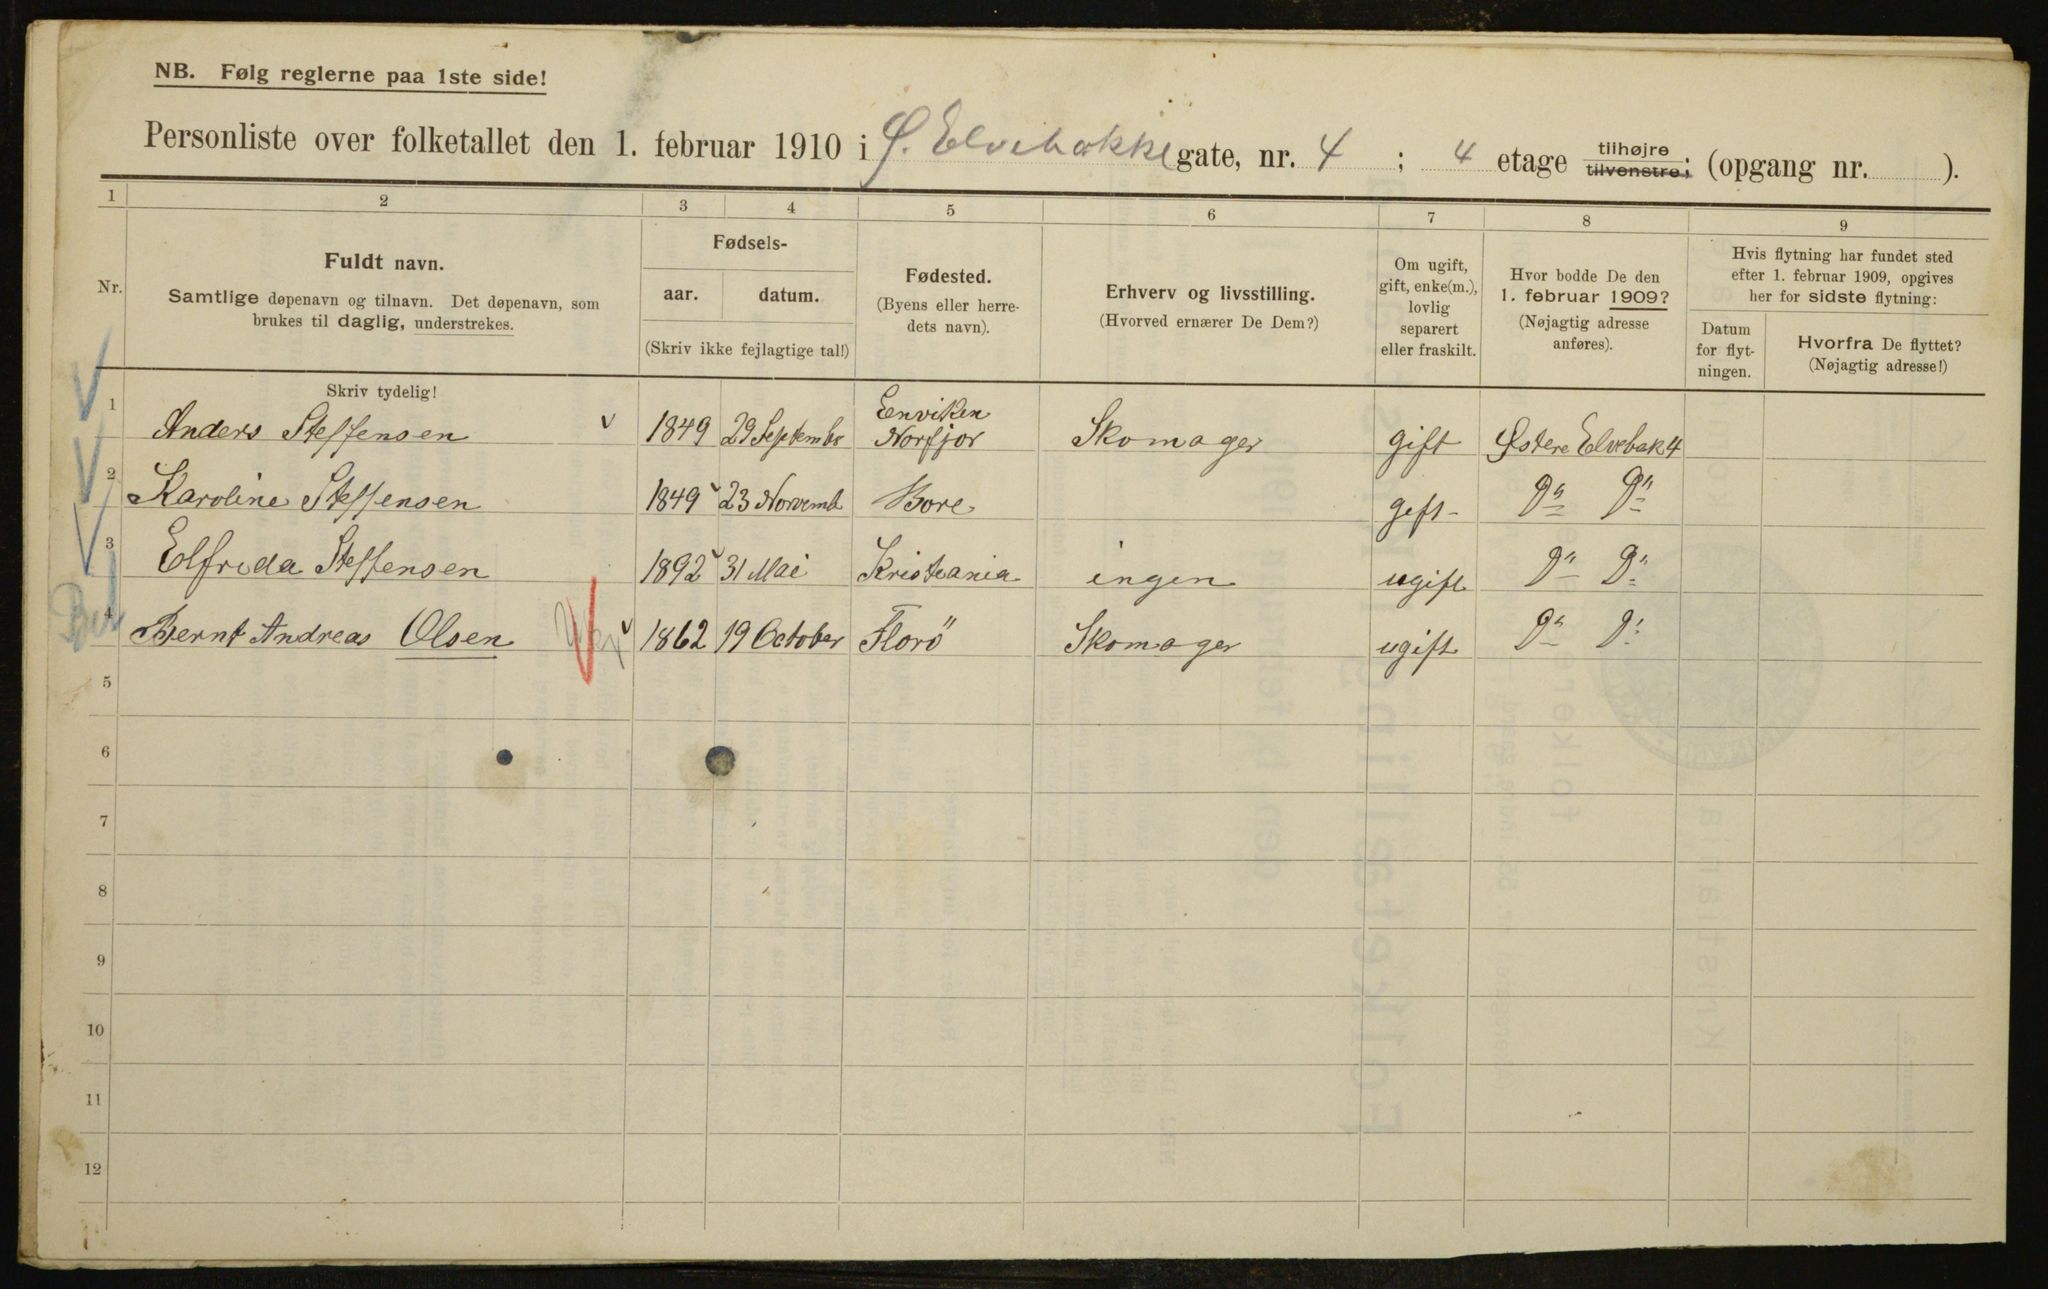 NB. Følg reglerne paa 1ste side!
Personliste over folketallet den 1. februar 1910 i Ø. Elvebakke gate, nr. 4 ; 4 etage tilhøjre tilvenstre; (opgang nr. ).
1 2 3 4 5 6 7 8 9
Nr.
Fuldt navn.
Samtlige døpenavn og tilnavn. Det døpenavn, som
brukes til daglig, understrekes.
Fødsels-
aar. datum.
(Skriv ikke fejlagtige tal!)
Fødested.
(Byens eller herre-
dets navn).
Erhverv og livsstilling.
(Hvorved ernærer De Dem?)
Om ugift,
gift, enke(m.),
lovlig
separert
eller fraskilt.
Hvor bodde De den
1. februar 1909?
(Nøjagtig adresse
anføres).
Hvis flytning har fundet sted
efter 1. februar 1909, opgives
her for sidste flytning:
Datum
for flyt-
ningen.
Hvorfra De flyttet?
(Nøjagtig adresse!)
Skriv tydelig!
1 Anders Steffensen 1849 29 Septembr Eenviken Norfjor Skomager gift Østere Elvebak 4
2 Karoline Steffensen 1849 23 Norvemb Bore gift D" D"
3 Elfrida Steffensen 1892 31 Mai Kristiania ingen ugift D" D"
4 Bernt Andreas Olsen 1862 19 October Florö Skomager ugift D" D"
5
6
7
8
9
10
11
12